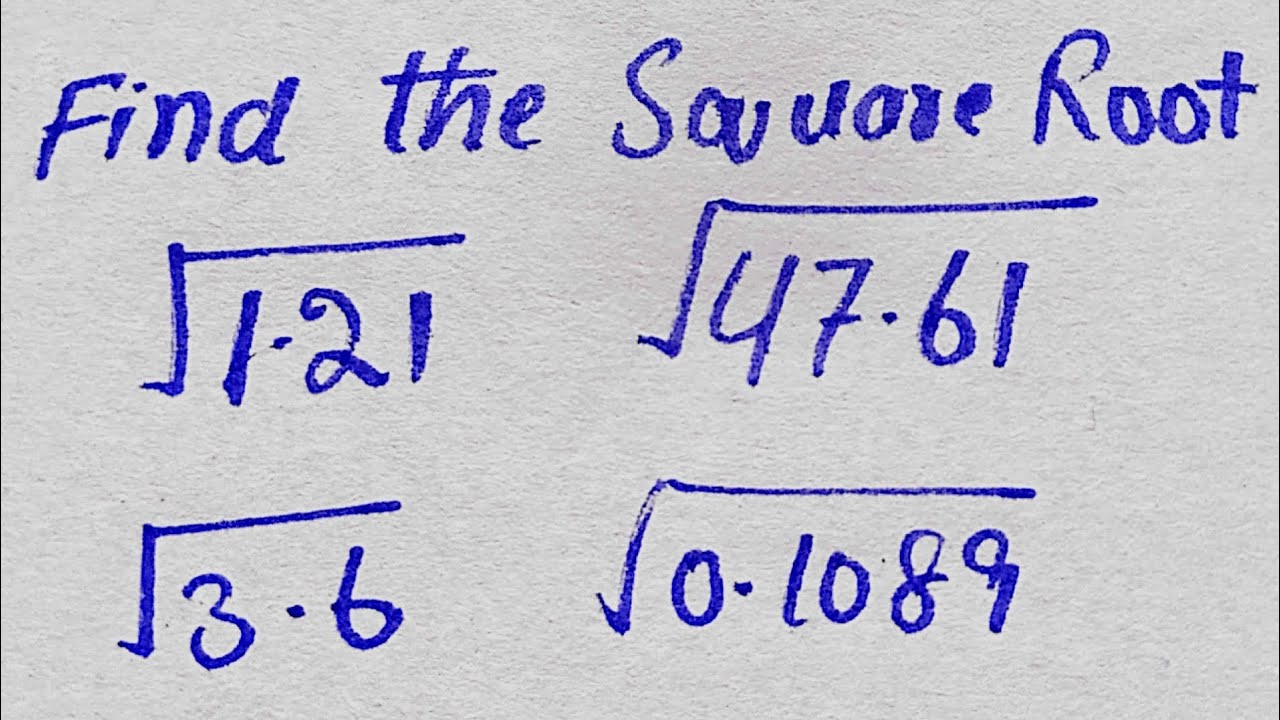 Find the Square Root
√1.21 √47.61
√3.6 √0.1089